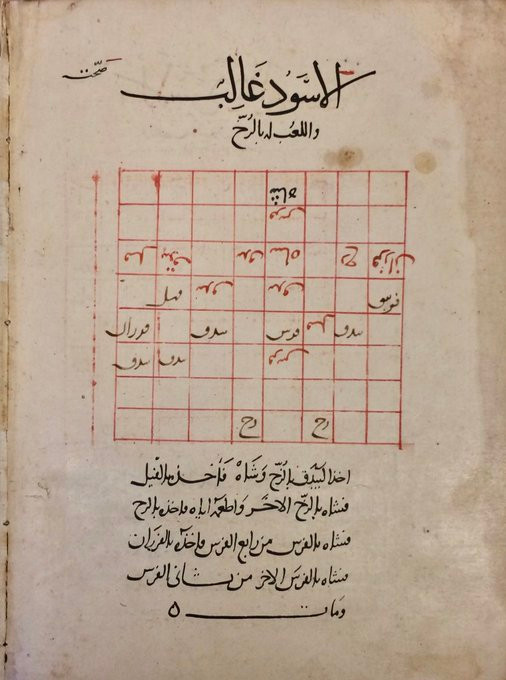 صحت
الاسود غالب
واللعب له بالرخ
شاه
فرس
فرزان رخ شاه بيدق بيدق فيل
فرس بيدق بيدق فيل
بيدق فيل فرس بيدق فرزان
فرس بيدق بيدق
رخ رخ
اخذ البيدق بالرخ وشاه فاخذه بالفيل
فشاه بالرخ الاخر واطعمه اياه فاخذه بالرخ
فشاه بالفرس من رابع الفرس فاخذه بالفرزان
فشاه بالفرس الاخر من ثانى الفرس
ومات ه